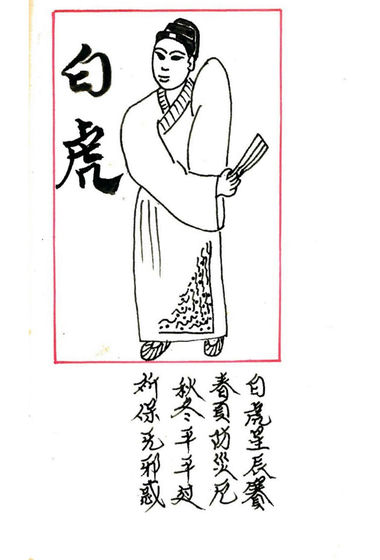 白虎
白虎星辰賽
春夏防災厄
秋冬平平過
祈保无邪惑